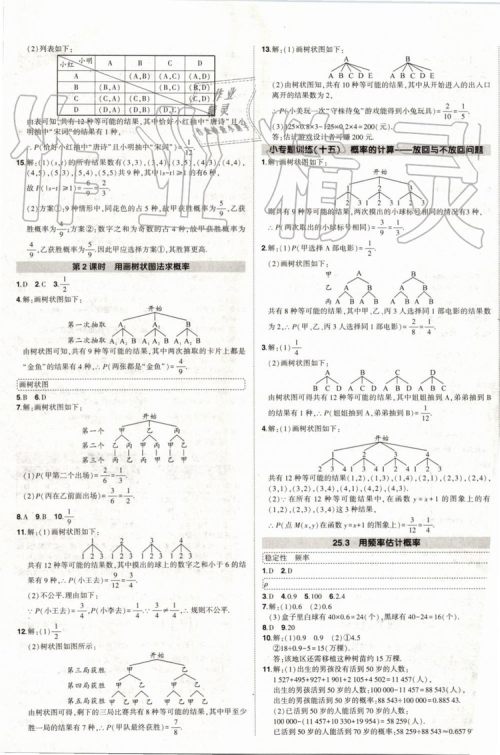 (2)列表如下:
小红 小明 A B C D
A (A,B) (A,C) (A,D)
B (B,A) (B,C) (B,D)
C (C,A) (C,B) (C,D)
D (D,A) (D,B) (D,C)
由表可知,共有12种等可能的结果,其中恰好小红抽中“唐诗”且小
明抽中“宋词”的结果有1种,
∴P(恰好小红抽中“唐诗”且小明抽中“宋词”)=1/12
(2)方案①:9种情形中,同花色的占5种,故甲获胜概率为5/9,乙获
4/9,乙获胜概率为5/9.因此甲应选择方案①,其胜算更高.
第2课时 用画树状图法求概率
1.D 2.C 3.1/2
4.解:画树状图如下:
开始
第一次抽取 A₁ A₂ B
第二次抽取 A₁ A₂ B A₁ A₂ B A₁ A₂ B
由树状图可知,共有9种等可能的结果,其中两次抽取的卡片上都是
“金鱼”的结果有4种,∴P(两张都是“金鱼”)=4/9.
画树状图
5.B 6.D
7.解:画树状图如下:
开始
第一个 甲 乙 丙
第二个 乙 丙 甲 丙 甲 乙
第三个 丙 乙 丙 甲 乙 甲
(1)P(甲第二个出场)=2/6=1/3.
(2)P(丙在乙前面出场)=3/6=1/2.
8.A 9.B 10.1/9
11.解:(1)画树状图如下:
共有12种等可能的结果数,其中摸出的球上的数字之和小于6的结
果有9种,∴P(小王去)=9/12=3/4.
(2)不公平.理由如下:
∵P(小王去)=3/4,P(小李去)=1/4.∵3/4≠1/4,∴规则不公平.
12.解:(1)1/2
(2)树状图如图所示:
开始
第三局获胜 甲 乙
第四局获胜 甲 乙 甲 乙
第五局获胜 甲 乙 甲 乙 甲 乙 甲 乙
由树状图可得,剩下的三局比赛共有8种等可能的结果,其中甲至少
胜一局的结果有7种,∴P(甲队最终获胜)=7/8.
13.解:(1)画树状图如下:
A B
A B C D E A B C D E
(2)由树状图知,共有10种等可能的结果,其中从开始进入的出入口
离开的结果数为2,
∴P(小美玩一次“守株待兔”游戏能得到小兔玩具)=2/10=1/5.
答:估计游戏设计者可赚200元.
小专题训练(十五) 概率的计算——放回与不放回问题
1.解:画树状图如下:
开始
则共有9种等可能的结果,两次摸出的小球标号相同的情况有3种,
∴P(两次取出的小球标号相同)=3/9=1/3.
2.解:(1)P(甲选择A部电影)=1/2.
(2)画树状图如下:
甲 A B
乙 A B A B
丙 A B A B A B A B
共有8种等可能的结果,其中甲、乙、丙3人选择同1部电影的结果数
为2,∴P(甲、乙、丙3人选择同1部电影)=2/8=1/4.
3.解:(1)1/4
(2)画树状图如下:
A B C D
B C D A C D A B D A B C
由树状图可得共有12种等可能的结果,其中姐姐抽到A,弟弟抽到B
的结果有1种,∴P(姐姐抽到A,弟弟抽到B)=1/12.
4.解:(1)画树状图如下:
开始
1 2 3 4
2 3 4 1 3 4 1 2 4 1 2 3
共有12种等可能的结果(1,2),(1,3),(1,4),(2,1),(2,3),(2,4),
(3,1),(3,2),(3,4),(4,1),(4,2),(4,3).
(2)∵在所有12种等可能结果中,在函数y=x+1的图象上的有
(1,2),(2,3),(3,4)这3种结果,
∴P(点M(x,y)在函数y=x+1的图象上)=3/12=1/4.
25.3 用频率估计概率
稳定性 频率
1.D 2.D
p
3.D 4.D 5.100 6.2.4
7.解:(1)0.6 (2)0.6
(3)盒子里白球有40×0.6=24(个),黑球有40-24=16(个).
8.D 9.20
10.解:(1)0.9 0.9 (2)①4.5
②18÷0.9-5=15(万棵).
答:该地区还需移植这种树苗约15万棵.
11.解:(1)出生的男孩没有活到50岁的人数:
1 527+495+927+1 901+2 105+4 502=11 457(人),
出生的男孩活到50岁的人数:100 000-11 457=88 543(人),
出生的男孩能活到50岁的概率:88 543÷100 000=0.885 43.
(2)已活到50岁的人后活到80岁的人数:
100 000-(11 457+10 330+19 954)=58 259(人).
已活到50岁的人能活到80岁的概率:58 259÷88 543≈0.657 9